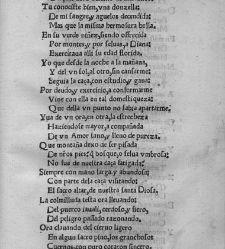 Tu conociste bien, vna donzella:
De mi sangre, y aguelos decendida:
Mas que la misma hermosura bella.
En su verde niñez, siendo ofrecida
Por montes, y por seluas, a Diana:
Exercitaua alli su edad florida.
Yo que desde la noche a la mañana,
Y del vn sol, al otro, sin cansarme:
Seguia la caça, con estudio, y gana:
Por deudo, y exercicio, a conformarme
Vine con ella en tal domestiqueza:
Que della vn punto no sabia apartarme.
Yua de vn ora, en otra, la estrecheza
Haziendose mayor, a compañada
De vn Amor sano, y lleno de pureza.
Que montaña dexo de ser pisada
De nros pies? o bosque, o selua vmbrosa:
No fue de nuestra caça fatigada;
Siempre con mano larga, y abundosa:
Con parte dela caça visitando:
El sacro altar, de nuestra santa Diosa.
La colmilluda testa ora lleuando:
Del puerco iauali, cerdoso, y fiero,
Del peligro pasado razonando.
Ora clauando del cieruo ligero
En algun sacro pino, los ganchosos
Cuernos, con puro coraçon sincero.